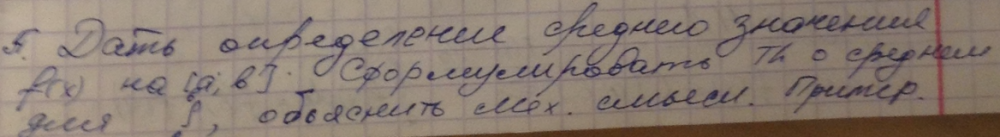 5. Дать определение среднего значения
f(x) на [a; b]. Сформулировать Th о среднем
для ∫, объяснить мех. смысл. Пример.